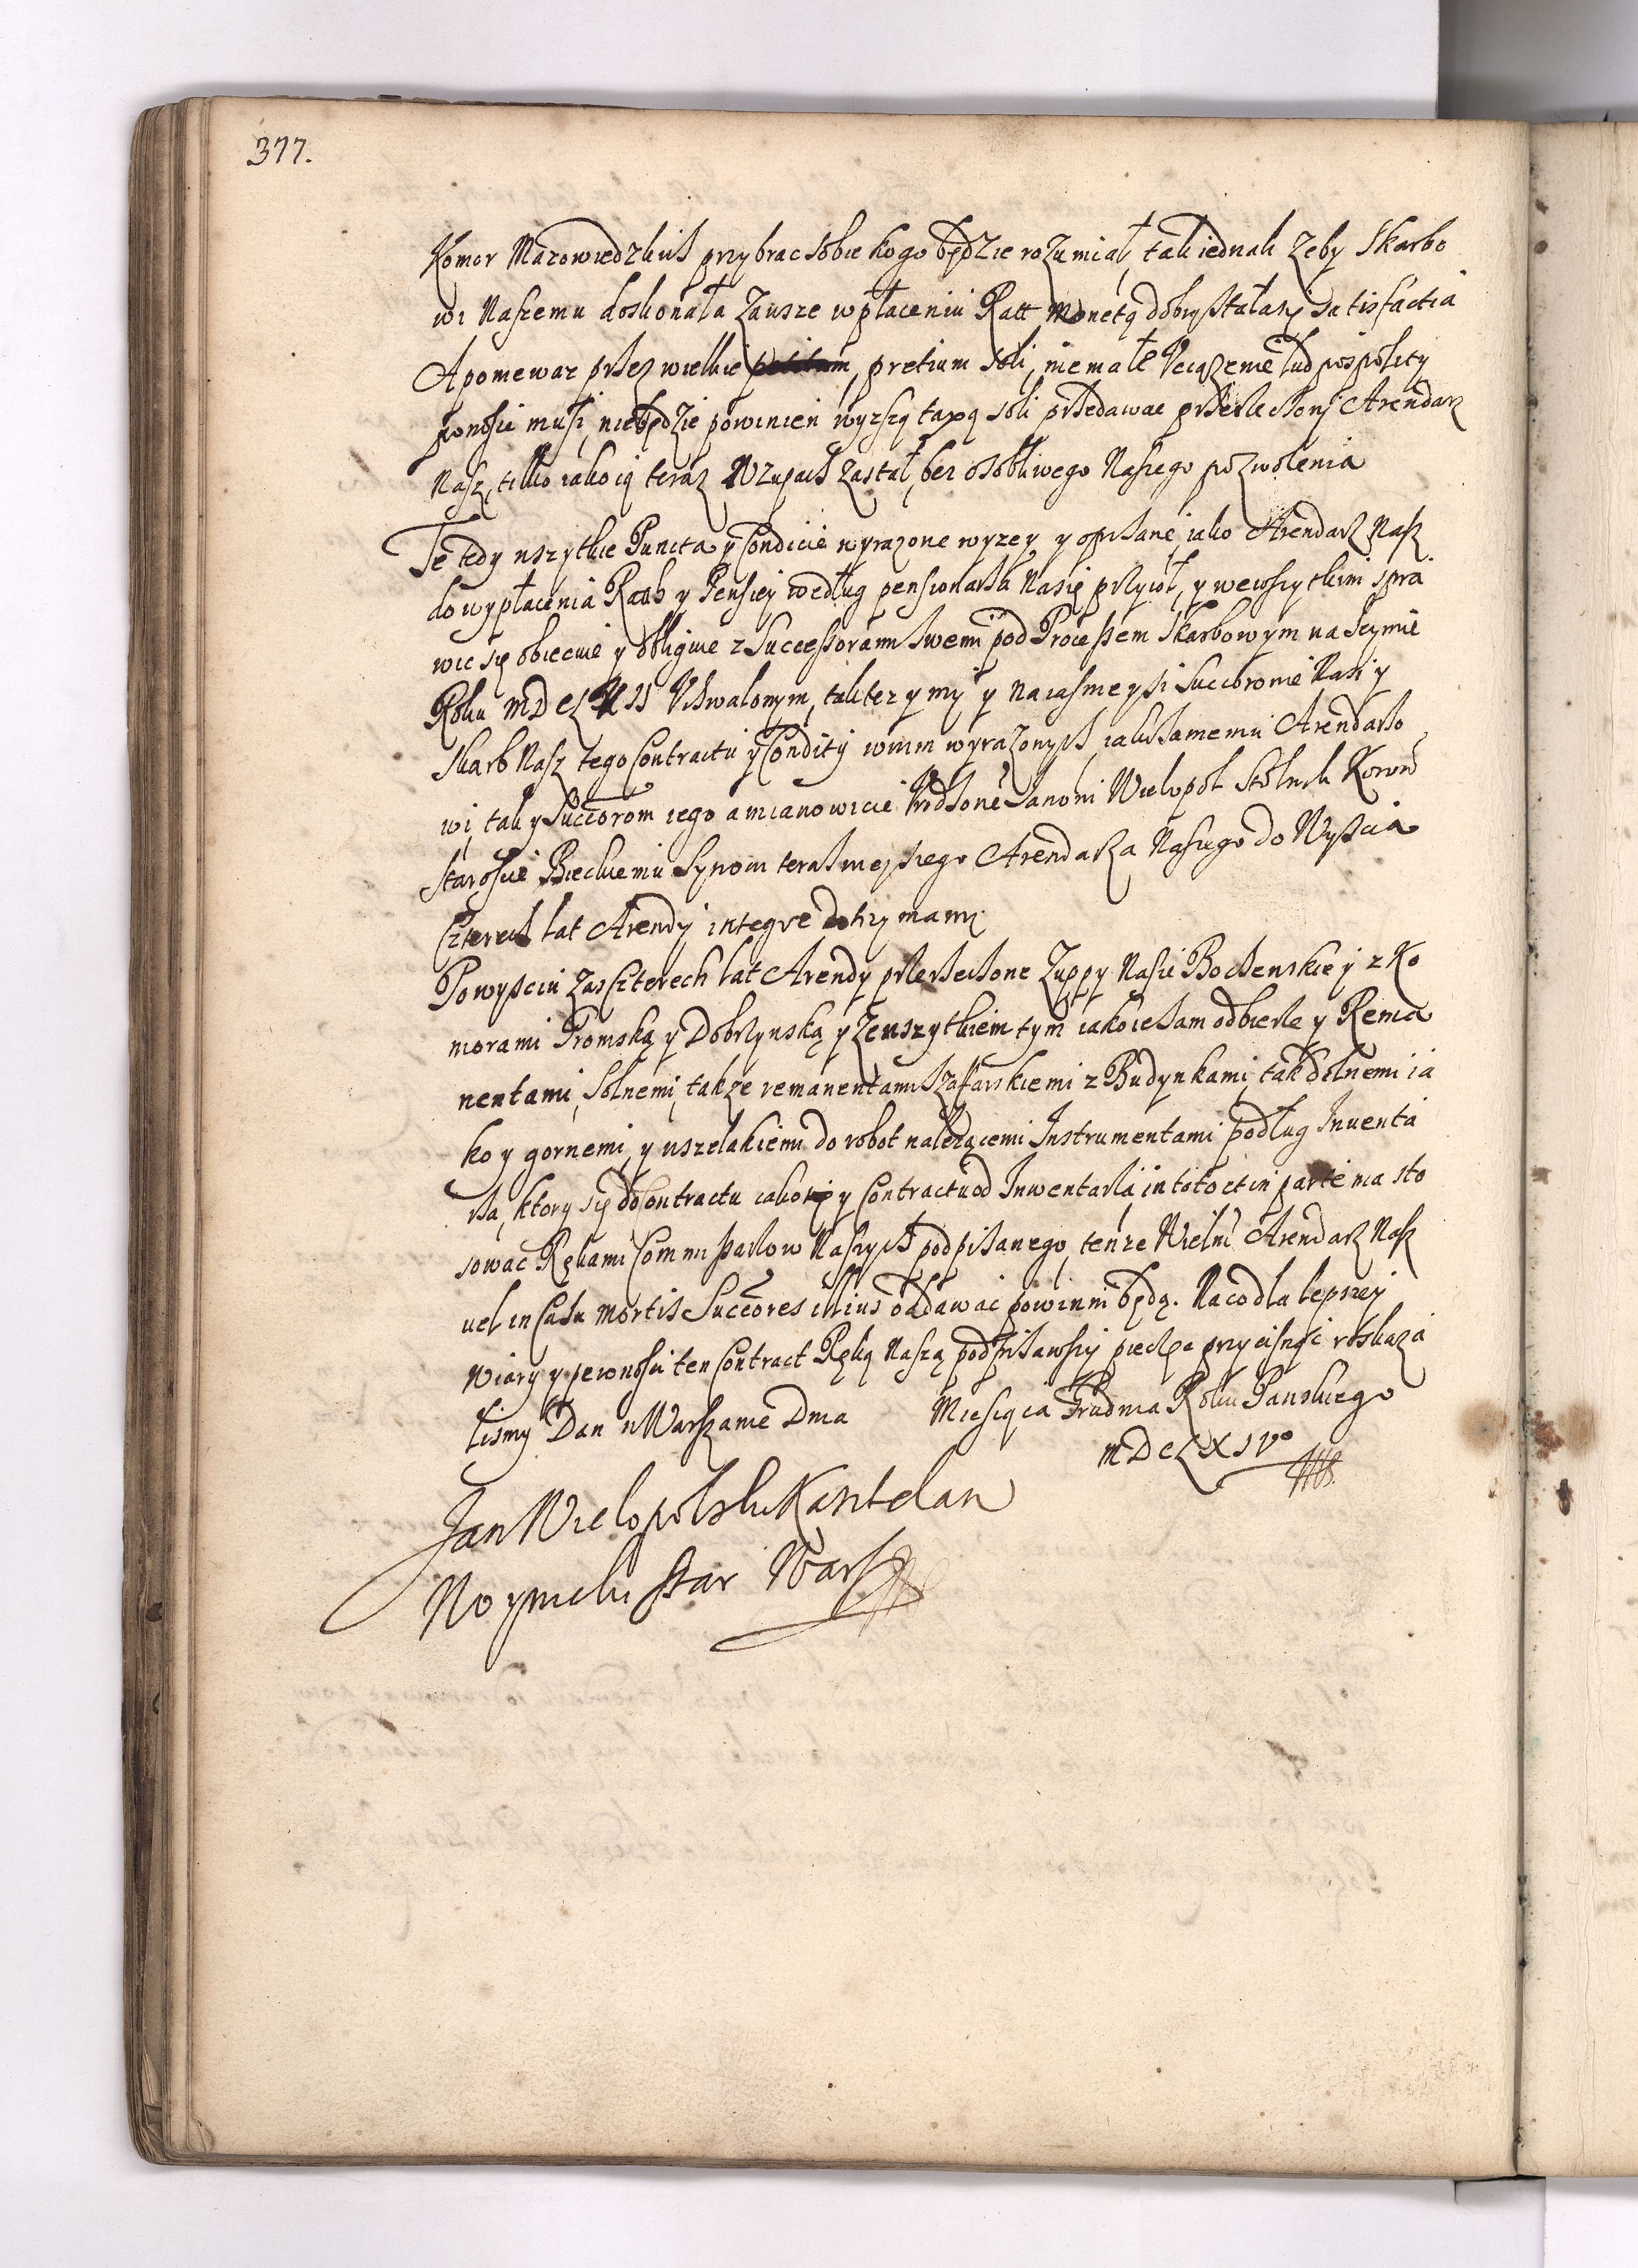 377.
Komor Mazowiedzkich przybrac sobie kogo będzie rozumiał, tak iednak zeby Skarbo
wi Naszemu doskonała zawsze w płaceniu Ratt Monetą dobrą stała się satisfactia
A poniewaz przez wielkie pretium soli, niemałe Vciązenie lud pospolity
ponosic musi, niebędzie powinien wyzszą taxą soli przedawac przerzeczony Arendarz
Nasz, tilko iako ią teraz W Zupach zastał, bez osobliwego Naszego pozwolenia
Te tedy wszytkie Puncta y Condicie wyrazone wyzey y opisane iako Arendarz Nasz
do wypłacenia Rath y Pensiey według pensionarza Nasię przyiął, y we wszytkim spra
wic się obiecuie y obliguie z Successorami swemi pod Processem Skarbowym na Seymie
Roku Vchwalonym, tak tez y my y Naiasnieysi Succorowie Nasi y
Skarb Nasz tego Contractu y Condity w nim wyrazonych, iak samemu Arendarzo
wi, tak y Succorom iego a mianowicie Vrodzone Janowi Wielopol Stolnik Koron
Staroscie Bieckiemu Synowi terazniejszego Arendarza Naszego do Wyscia
Czterech lat Arendy integre dotrzymamy.
Po wysciu zas Czterech lat Arendy przerzeczone Zuppy Nasze Bochenskiey z Ko
morami Promską y Dobrzynską y ze wszytkiem tym iako ie sam odbierze y Rema
nentami, solnemi, takze remanentami szafarskiemi z Budynkami, tak dolnemi ia
ko y gornemi, y wszelakiemi do robot nalezącemi Instrumentami podług Inuenta
rza, ktory się do Contractu iako y Contractu od Inwentarza in toto et in parte ma sto
sowac Rękami Commissarzow Naszych podpisanego, tenze Wielm Arendarz Nasz
uel in Casu mortis Succores illius oddawac powinni będą. Na co dla lepszey
Wiary y pewnosci ten Contract Ręką Naszą podpisawszy pieczęc przycisnąc roskaza
lismy Dan w Warszawie Dnia Miesiąca Grudnia Roku Panskiego
MDCLXIVo
Jan Wielopolski Kasztelan
Woynicki Star Warsz